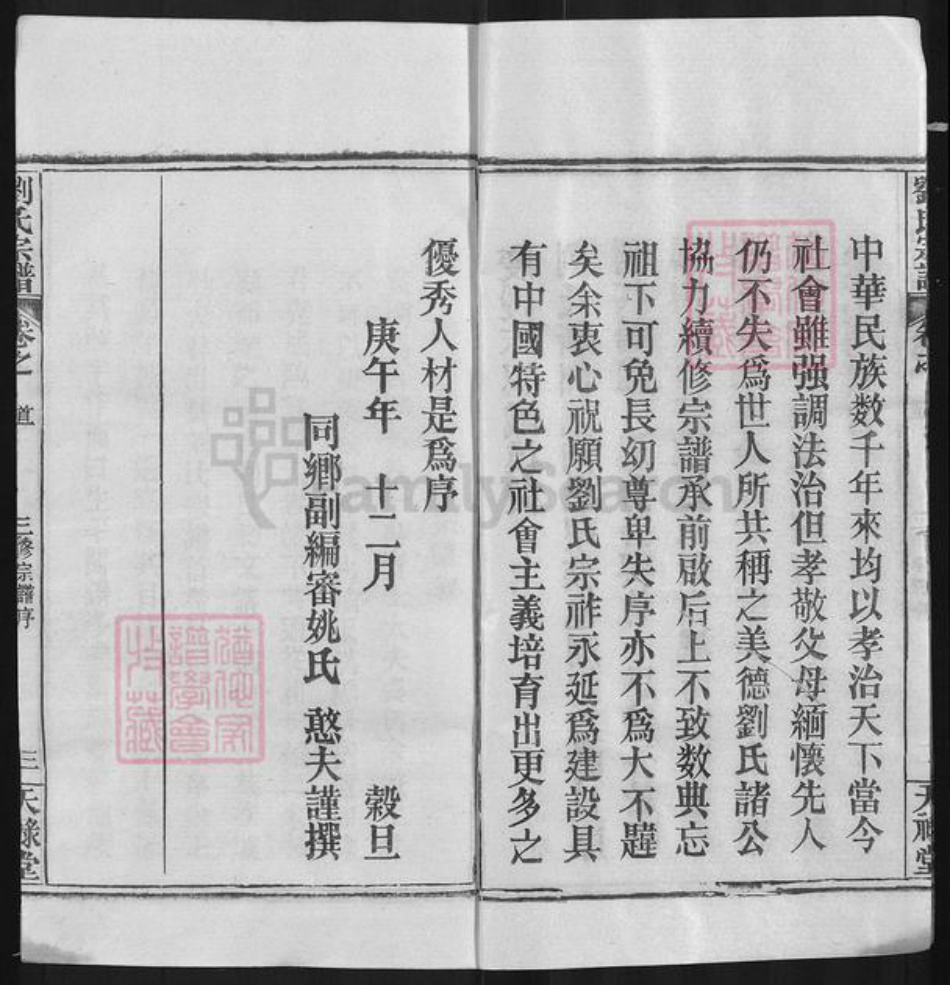 中華民族数千年來均以孝治天下當今
社會雖强調法治但孝敬父母緬懷先人
仍不失爲世人所共稱之美德劉氏諸公
協力續修宗譜承前啟后上不致数典忘
祖下可免長幼尊卑失序亦不爲大不韙
矣余衷心祝願劉氏宗祚永延爲建設具
有中國特色之社會主義培育出更多之
優秀人材是爲序
庚午年 十二月 穀旦
同鄉副編審姚氏 憨夫謹撰
劉氏宗譜 卷之 道 三修宗譜序 三 天祿堂
FamilySearch